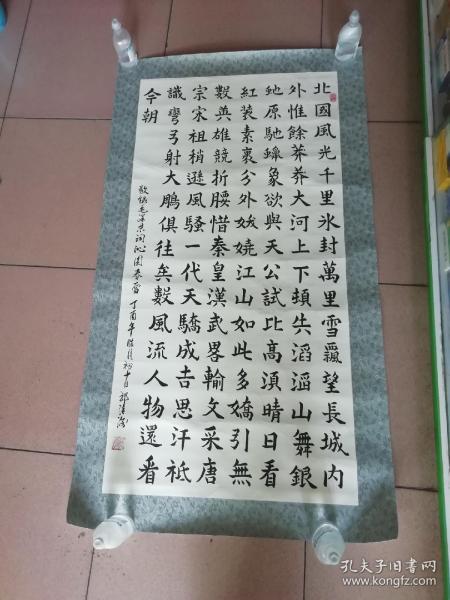 北國風光千里氷封萬里雪飄望長城内
外惟餘莽莽大河上下頓失滔滔山舞銀
蛇原馳蠟象欲與天公試比高須晴日看
紅装素裹分外妖嬈江山如此多嬌引無
數英雄競折腰惜秦皇漢武畧輸文采唐
宗宋祖稍遜風騷一代天驕成吉思汗祗
識彎弓射大鵬俱往矣數風流人物還看
今朝
敬録毛泽東詞沁園春雪 丁酉年臘月初十日
孔夫子旧书网
www.kongfz.com